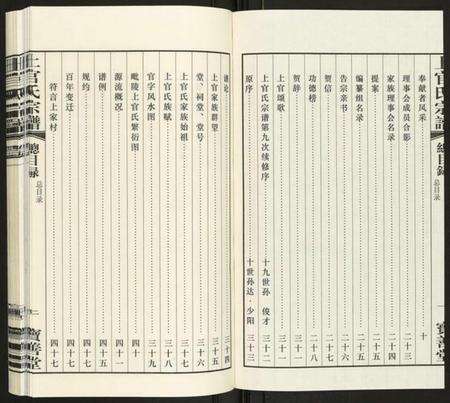 上官氏宗譜
總目録
总目录
寶善堂
奉献者风采 十
理事会成员合影 二十三
家族理事会名录 二十四
提案 二十五
编纂组名录 二十六
告宗亲书 二十七
贺信 二十八
功德榜 二十九
贺辞 三十
上官颂歌 三十一
上官氏宗谱第九次续修序 十九世孙 俊才 三十二
原序 十世孙达·少阳 三十三
谱论 三十四
上官家族群望 三十五
堂、祠堂、堂号 三十六
上官氏家族始祖 三十七
上官氏族赋 三十八
官字风水图 三十九
毗陵上官氏繁衍图 四十
源流概况 四十一
谱例 四十五
规约 四十六
百年变迁 四十七
符言上家村 四十七
上官氏宗譜
總目録
总目录
二
寶善堂